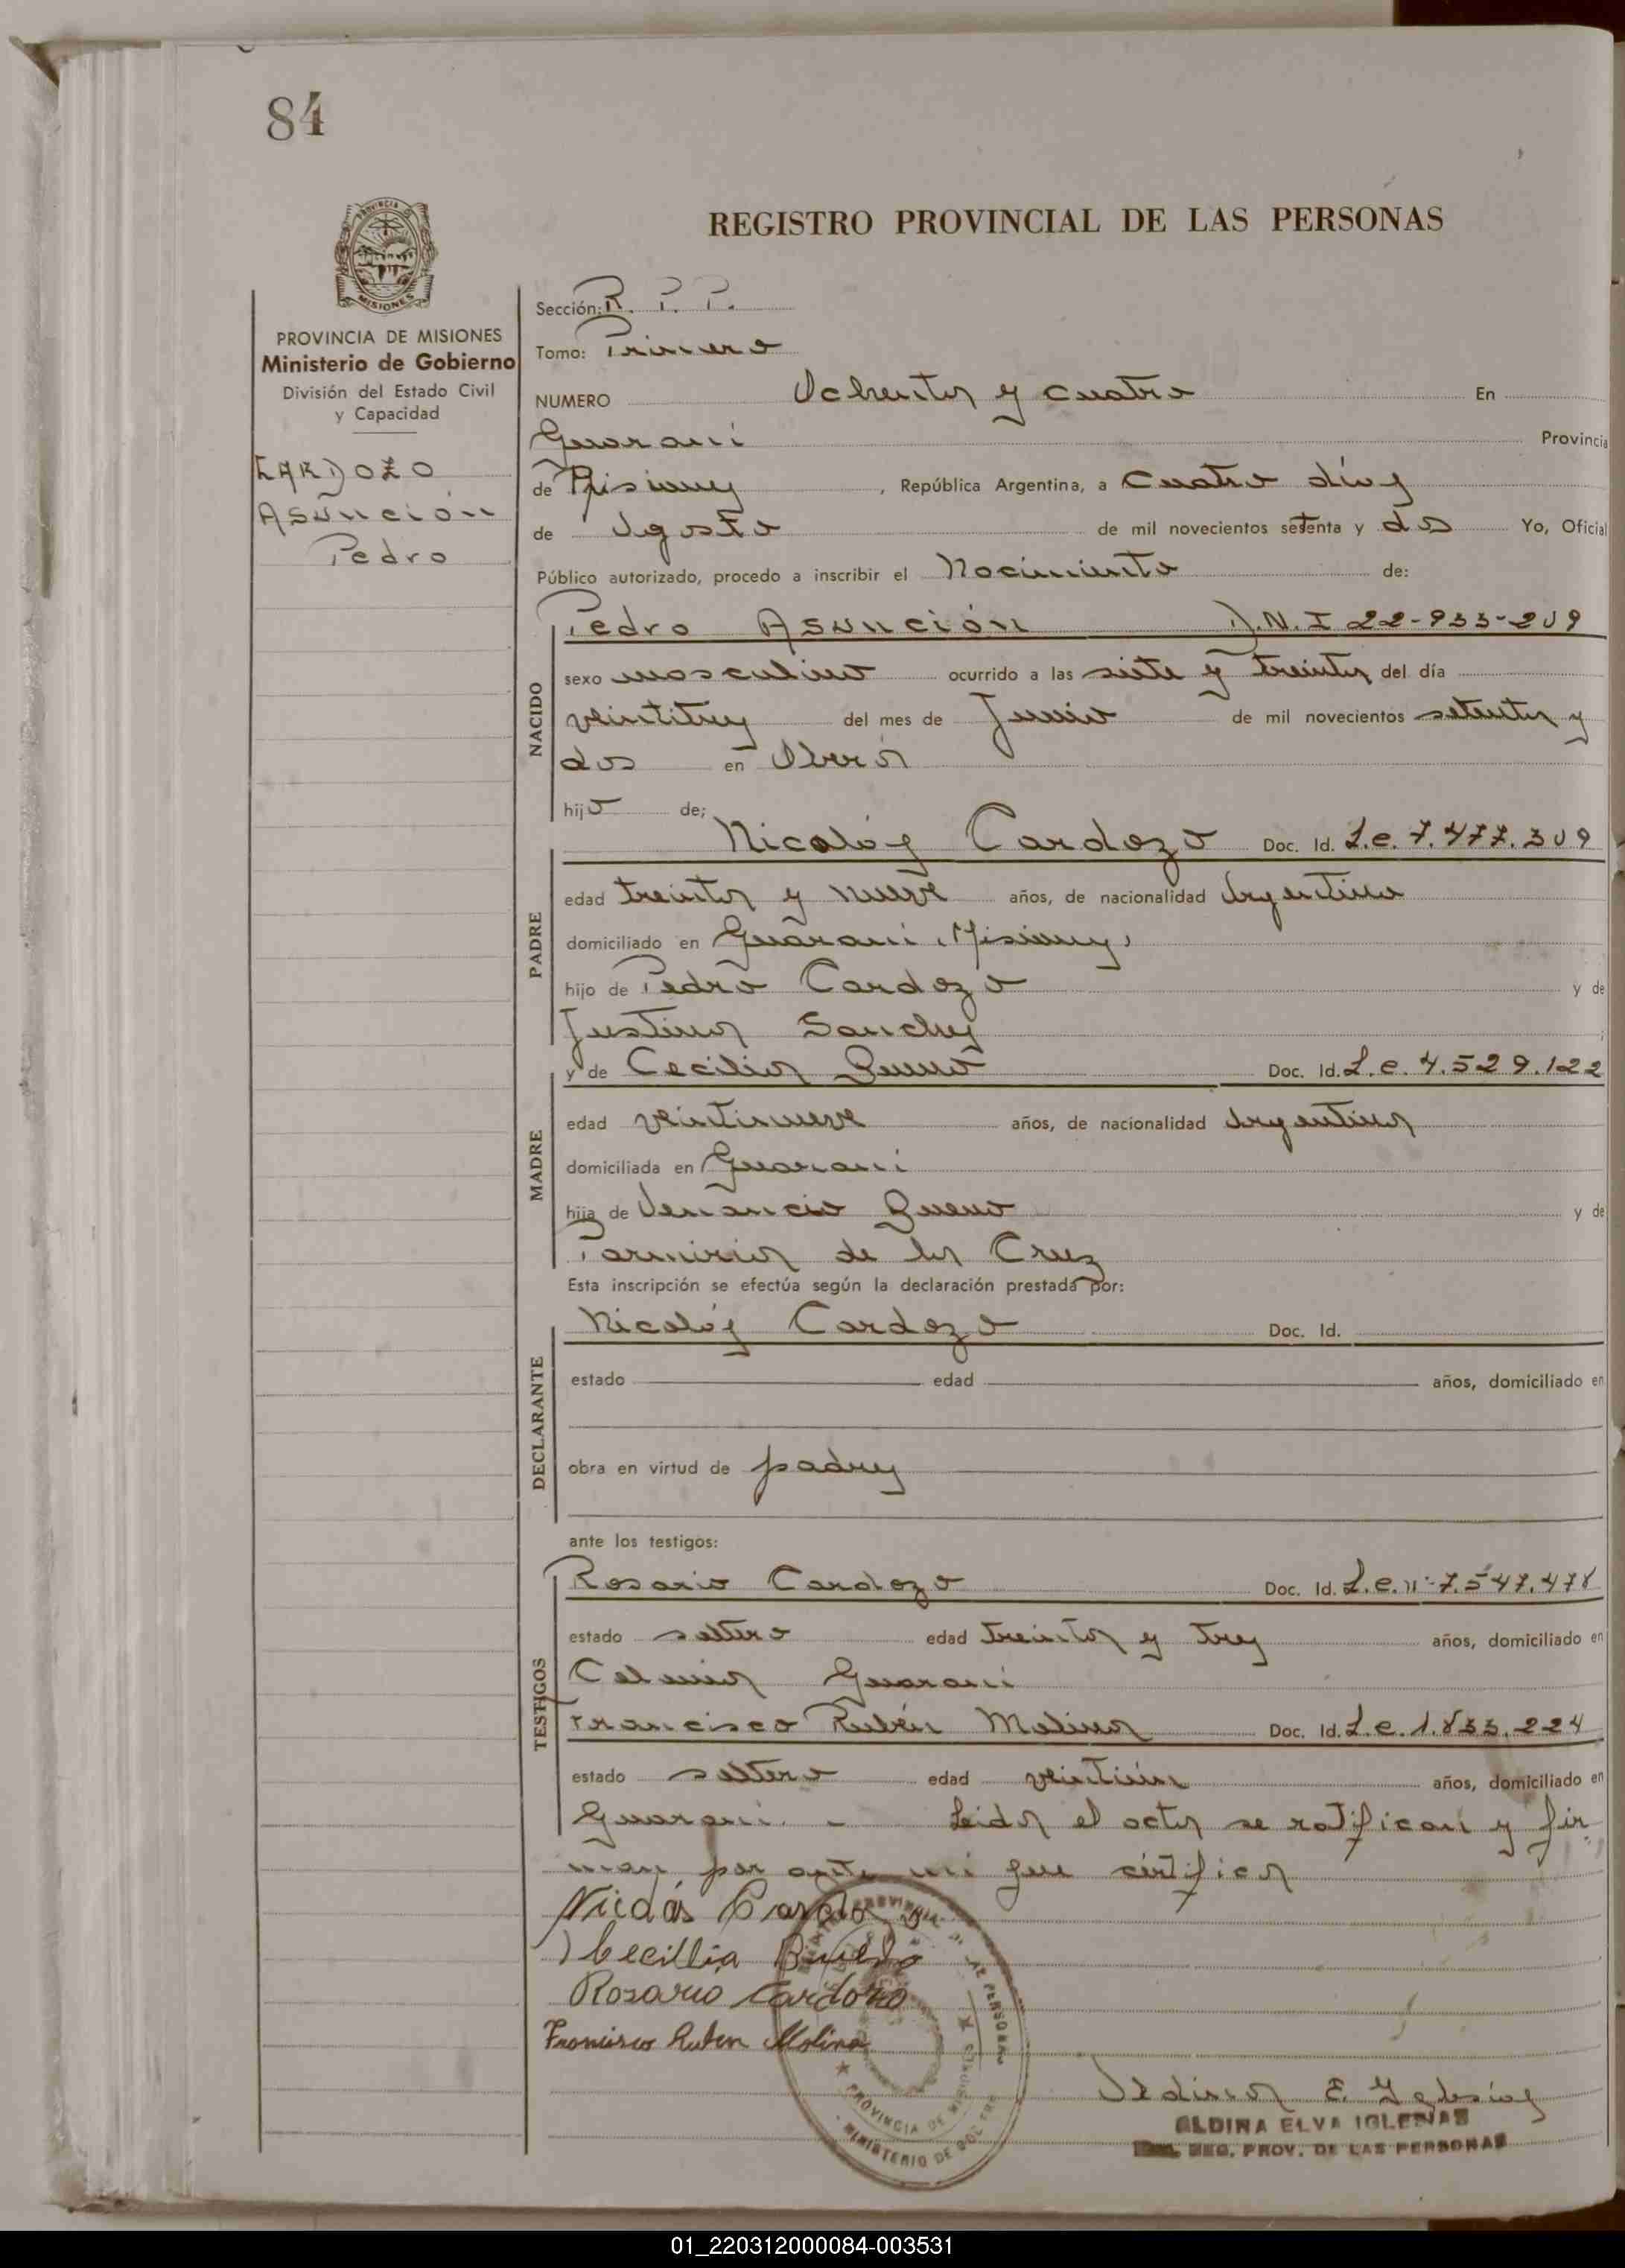 84
REGISTRO PROVINCIAL DE LAS PERSONAS
PROVINCIA
MISIONES
PROVINCIA DE MISIONES
Ministerio de Gobierno
División del Estado Civil
y Capacidad
CARDOZO
Asunción
Pedro
Sección: R. P. P.
Tomo: Primero
NUMERO Ochenta y cuatro En
Guaraní Provincia
de Misiones, República Argentina, a cuatro días
de Agosto de mil novecientos setenta y dos Yo, Oficial
Público autorizado, procedo a inscribir el Nacimiento de:
Pedro Asunción D.N.I 22-933-209
NACIDO
sexo masculino ocurrido a las siete y treinta del día
veintitres del mes de Junio de mil novecientos setenta y
dos en Oberá
hijo de;
Nicolás Cardozo Doc. Id. L.e. 7.477.309
PADRE
edad treinta y nueve años, de nacionalidad Argentino
domiciliado en Guaraní, Misiones,
hijo de Pedro Cardozo y de
Justina Sanches
y de Cecilia Bueno Doc. Id. L.e. 4.529.122
MADRE
edad veintinueve años, de nacionalidad Argentina
domiciliada en Guaraní
hija de Venancio Bueno y de
de la Cruz
Esta inscripción se efectúa según la declaración prestada por:
Nicolás Cardozo Doc. Id.
DECLARANTE
estado edad años, domiciliado en
obra en virtud de padres
ante los testigos:
Rosario Cardozo Doc. Id. L.e. nº 7.547.478
TESTIGOS
estado soltero edad treinta y tres años, domiciliado en
Colonia Guaraní
Francisco Rubén Molina Doc. Id. L.e. 1.833.224
estado soltero edad veintiún años, domiciliado en
Guaraní. - Leida el acta se ratifican y fir
man por ante mi que certifica
Nicolás Cardozo
Cecillia Bueno
Rosario Cardozo
Francisco Ruben Molina
PROVINCIA DE MISIONES
MINISTERIO DE GOB
Aldina E. Iglesias
ALDINA ELVA IGLESIAS
REG. PROV. DE LAS PERSONAS
01_220312000084-003531